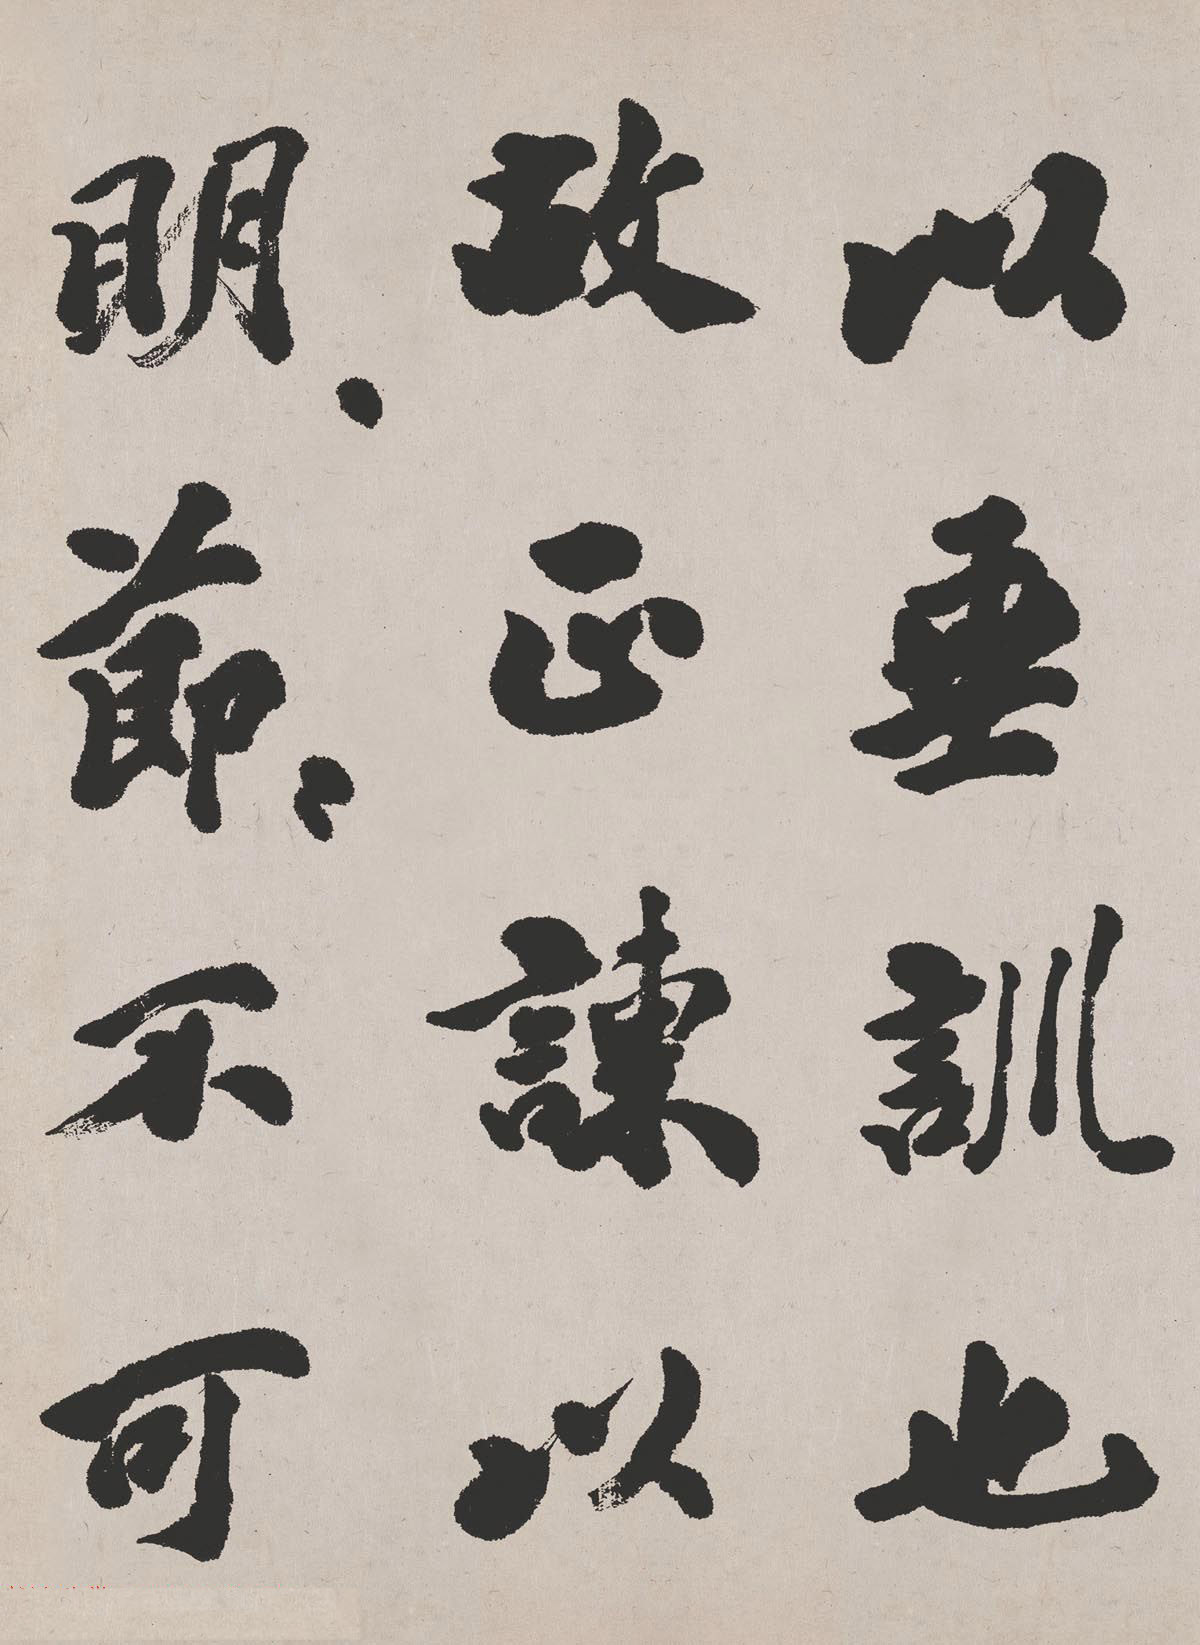 以垂訓也
故正諫以
明〻節〻不可